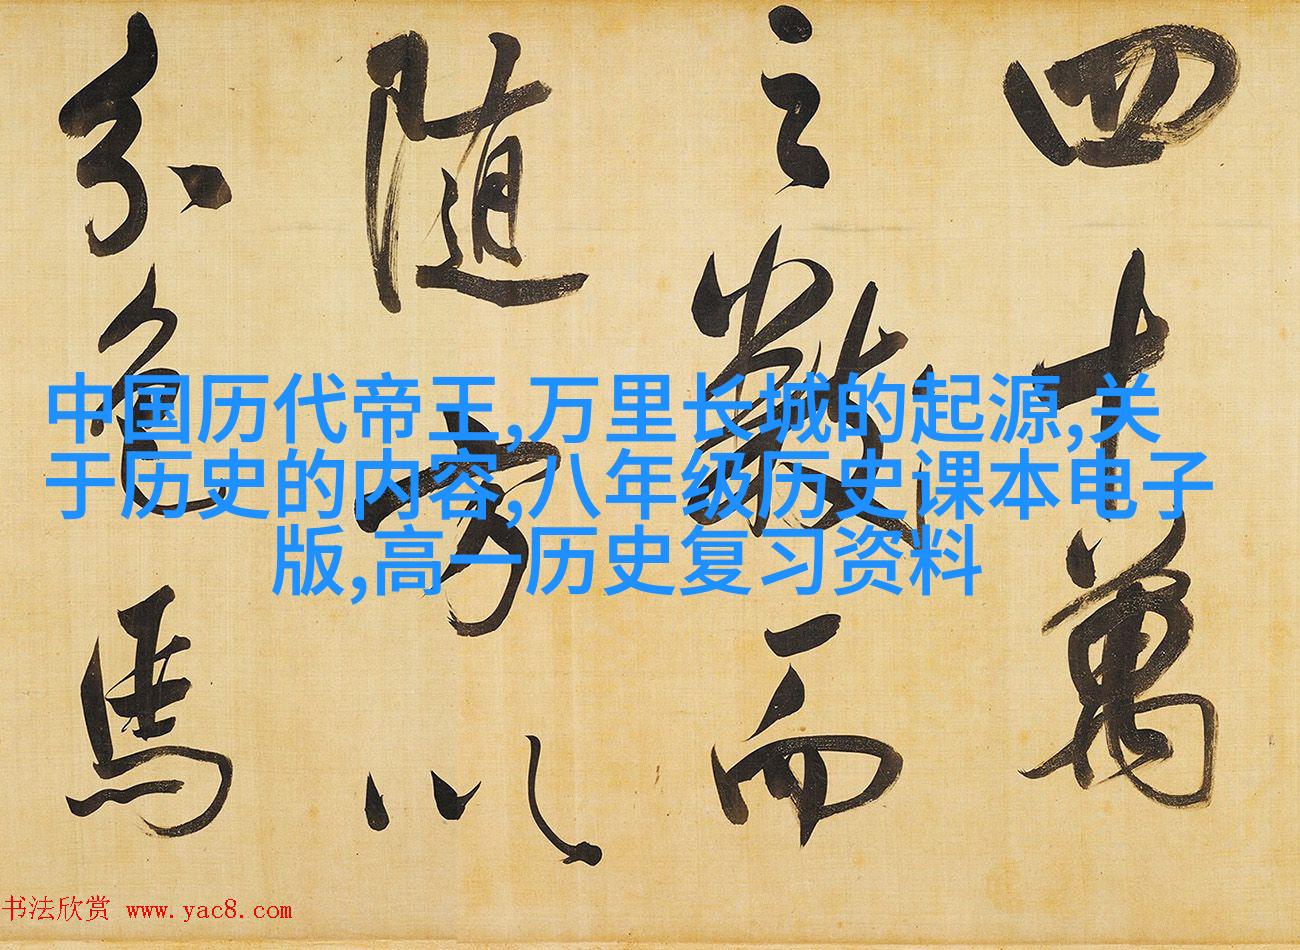 四十萬
之數而
随方以
分色馬
中国历代帝王,万里长城的起源,关
于历史的内容,八年级历史课本电子
版,高一历史复习资料
书法欣赏 www.yac8.com